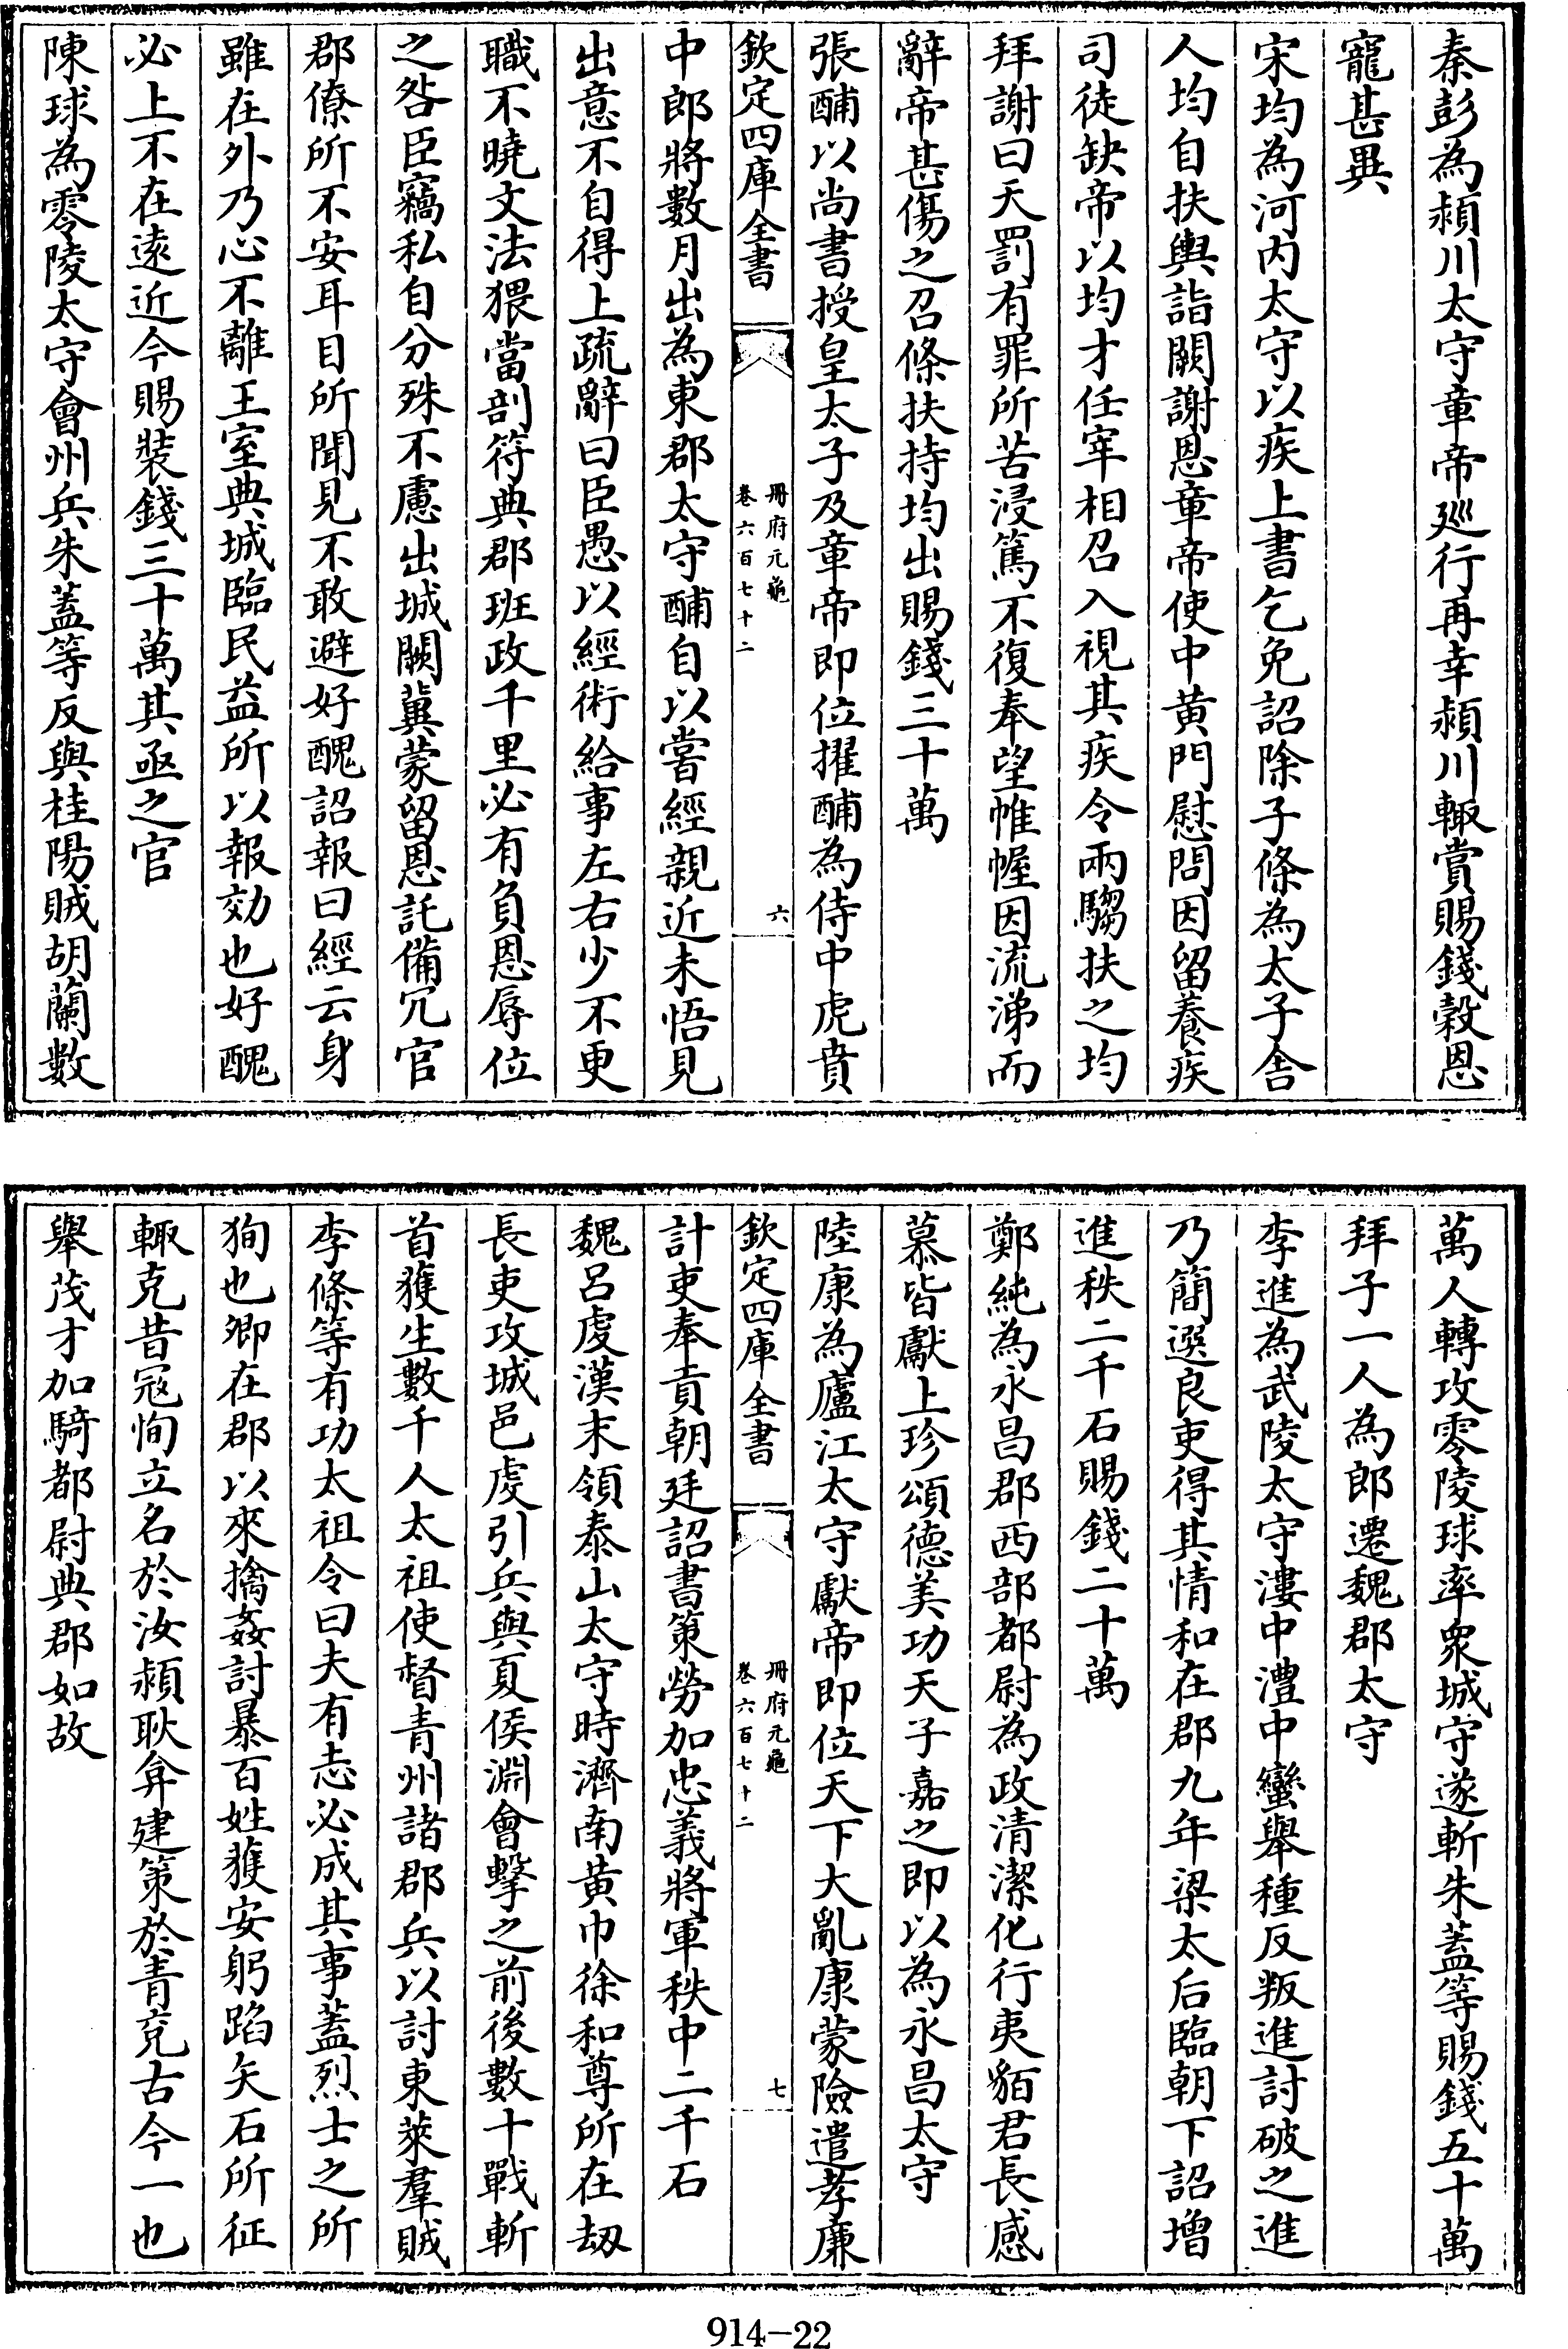 秦彭為潁川太守章帝廵行再幸潁川輙賞賜錢穀恩
寵甚異
宋均為河内太守以疾上書乞免詔除子條為太子舍
人均自扶輿詣闕謝恩章帝使中黄門慰問因留養疾
司徒缺帝以均才任宰相召入視其疾令兩騶扶之均
拜謝曰天罰有罪所苦浸篤不復奉望帷幄因流涕而
辭帝甚傷之召條扶持均出賜錢三十萬
張酺以尚書授皇太子及章帝即位擢酺為侍中虎賁
欽定四庫全書
冊府元龜
卷六百七十二
六
中郎將數月出為東郡太守酺自以嘗經親近未悟見
出意不自得上疏辭曰臣愚以經術給事左右少不更
職不曉文法猥當剖符典郡班政千里必有負恩辱位
之咎臣竊私自分殊不慮出城闕冀蒙留恩託備冗官
郡僚所不安耳目所聞見不敢避好醜詔報曰經云身
雖在外乃心不離王室典城臨民益所以報効也好醜
必上不在逺近今賜裝錢三十萬其亟之官
陳球為零陵太守會州兵朱蓋等反與桂陽賊胡蘭數
萬人轉攻零陵球率衆城守遂斬朱蓋等賜錢五十萬
拜子一人為郎遷魏郡太守
李進為武陵太守漊中澧中蠻舉種反叛進討破之進
乃簡選良吏得其情和在郡九年梁太后臨朝下詔增
進秩二千石賜錢二十萬
鄭純為永昌郡西部都尉為政清潔化行夷貊君長感
慕皆獻上珍頌德美功天子嘉之即以為永昌太守
陸康為廬江太守獻帝即位天下大亂康蒙險遣孝廉
欽定四庫全書
冊府元龜
卷六百七十二
七
計吏奉貢朝廷詔書策勞加忠義將軍秩中二千石
魏吕虔漢末領泰山太守時濟南黄巾徐和尊所在刼
長吏攻城邑虔引兵與夏侯淵會撃之前後數十戰斬
首獲生數千人太祖使督青州諸郡兵以討東萊羣賊
李條等有功太祖令曰夫有志必成其事蓋烈士之所
狥也卿在郡以來擒姦討暴百姓獲安躬蹈矢石所征
輙克昔寇恂立名於汝潁耿弇建策於青兖古今一也
舉茂才加騎都尉典郡如故
914-22